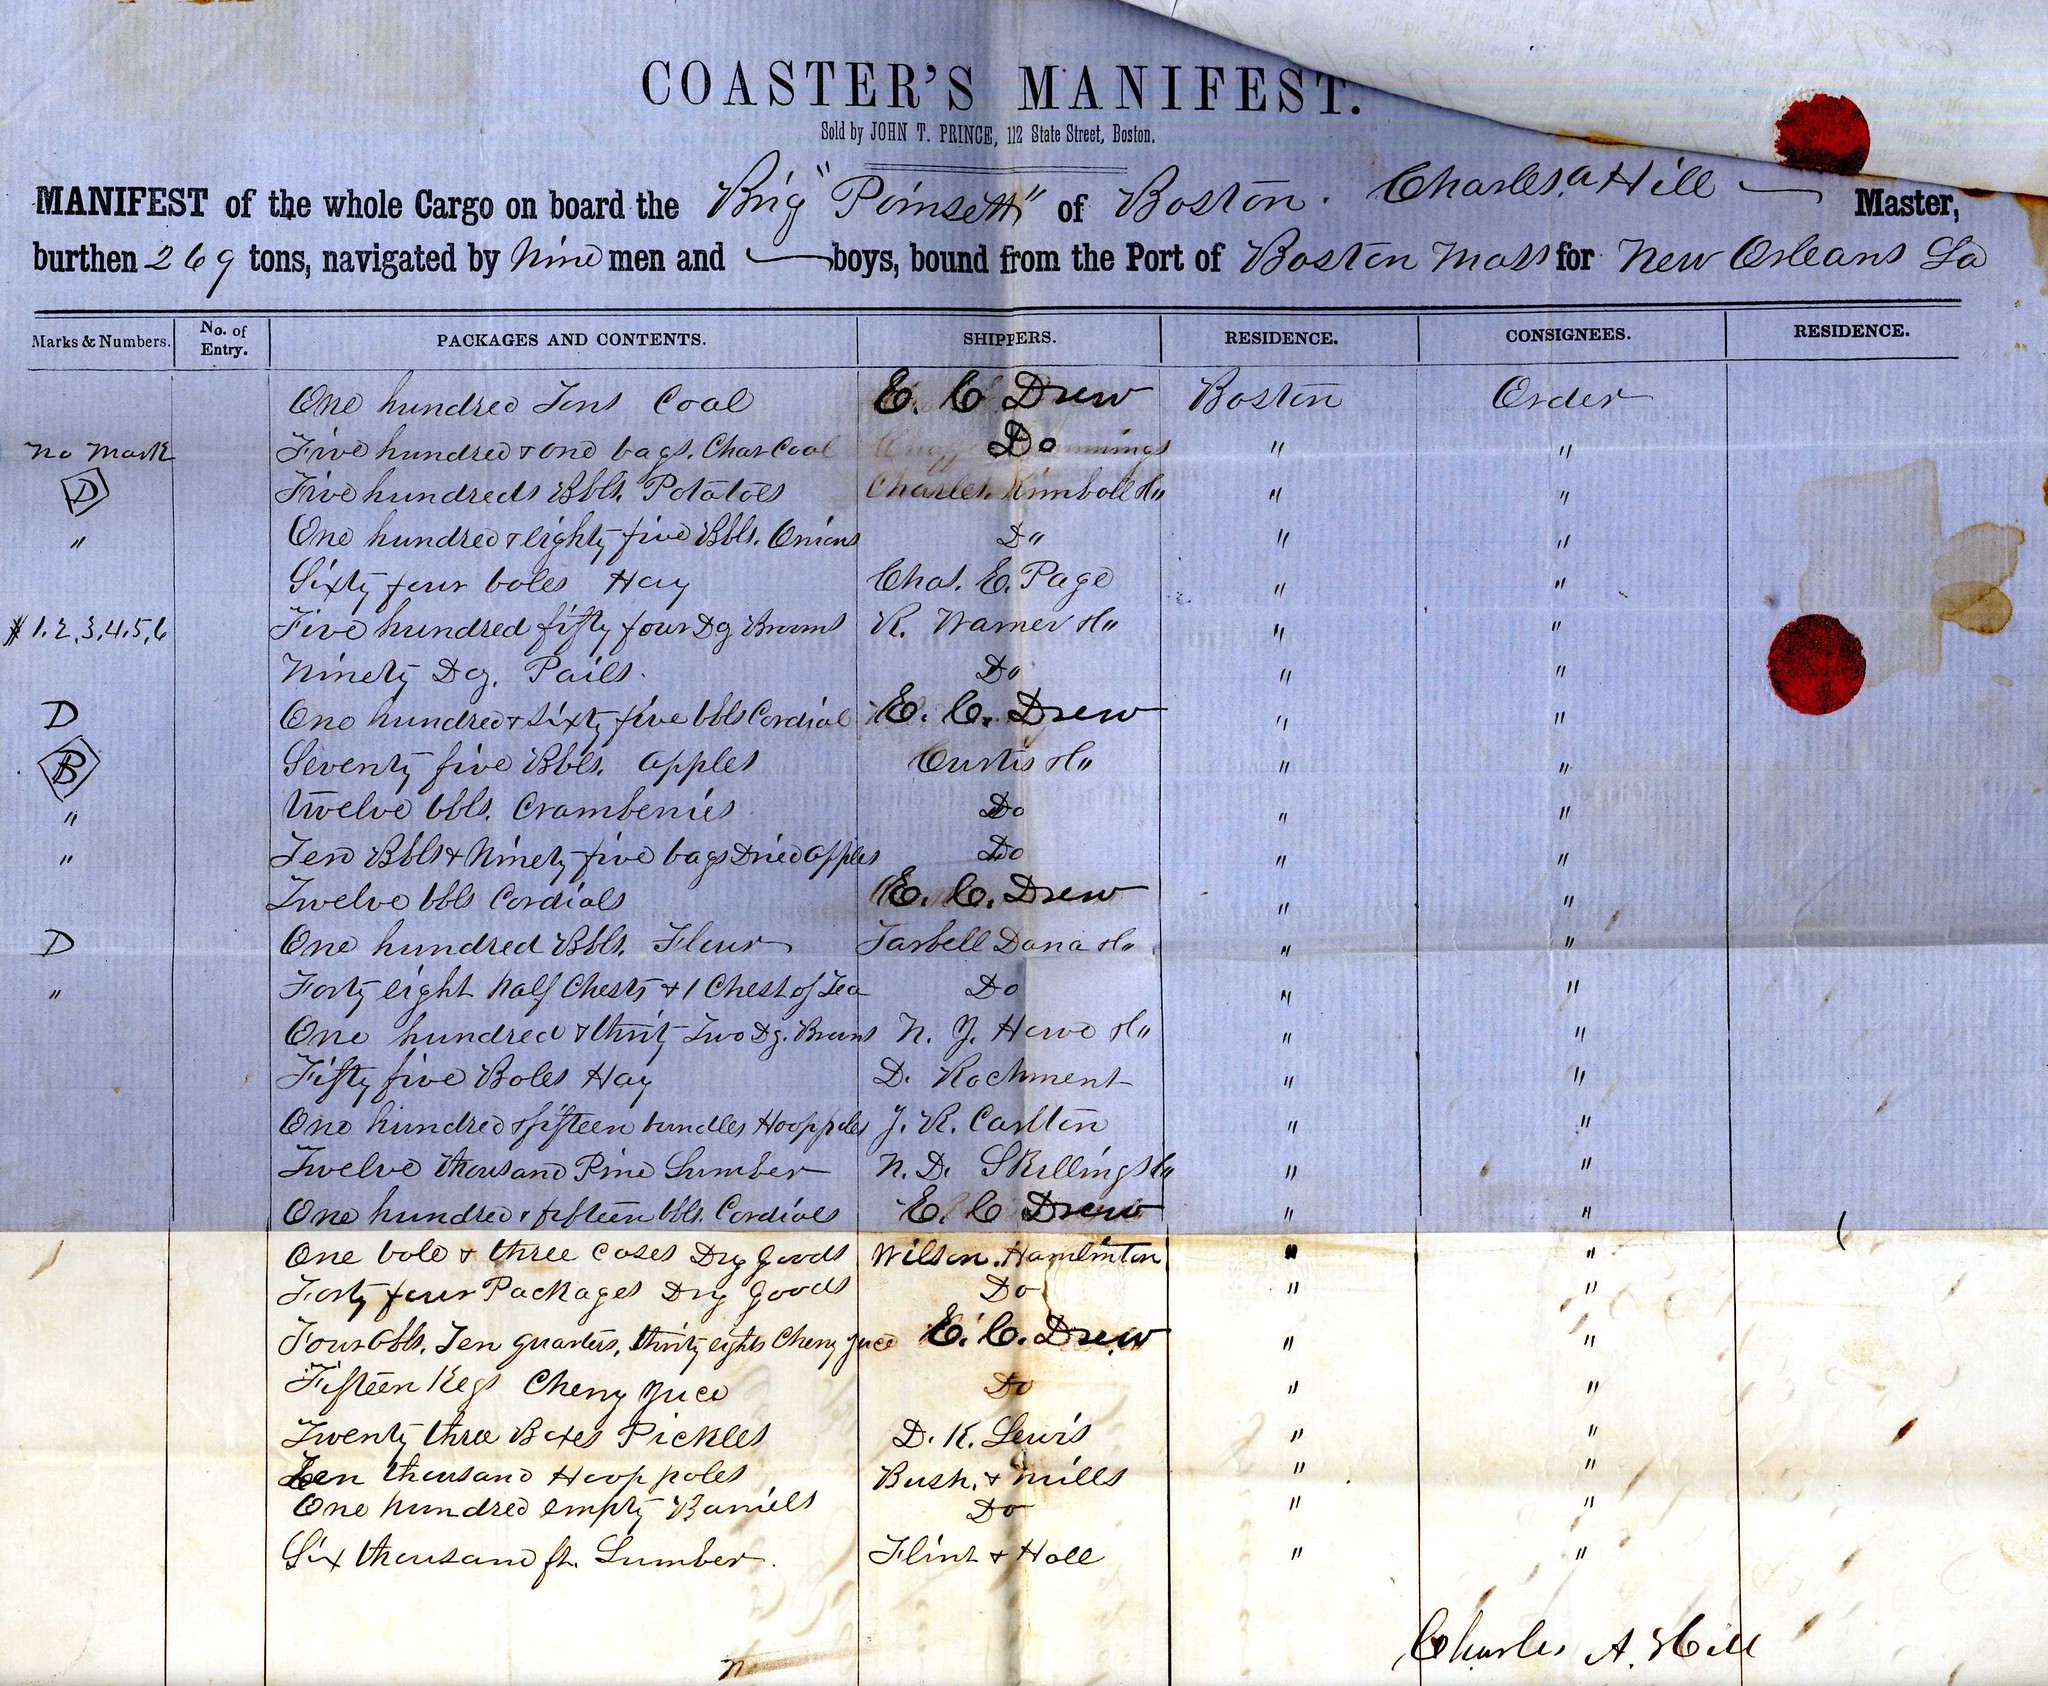 COASTER'S MANIFEST.
Sold by JOHN T. PRINCE, 112 State Street, Boston.
MANIFEST of the whole Cargo on board the Brig "Poinsett" of Boston. Charles. A Hill Master,
burthen 269 tons, navigated by Nine men and boys, bound from the Port of Boston Mass for New Orleans La
Marks & Numbers. No. of Entry. PACKAGES AND CONTENTS. SHIPPERS. RESIDENCE. CONSIGNEES. RESIDENCE.
One hundred Tons Coal E. C Drew Boston Order
No Mark Five hundred & one bags. CharCoal Do " "
D Five hundreds Bbls. Potatoes Charles. Kimball & Co " "
" One hundred & eighty five Bbls. Onions Do " "
Sixty four bales Hay Chas. E. Page " "
# 1. 2, 3, 4. 5, 6 Five hundred fifty four Dz Brooms R. Warner & Co " "
Ninety Dz. Pails. Do " "
D One hundred & sixty five bbls Cordial E. C. Drew " "
B Seventy five Bbls. apples Curtis & Co " "
" Twelve bbls. Cramberries Do " "
" Ten Bbls & Ninety five bags Dried apples Do " "
Twelve bbls Cordials E. C. Drew " "
D One hundred Bbls. Flour Tarbell Dana & Co " "
" Forty eight half Chests & 1 Chest of Tea Do " "
One hundred & thirty Two Dz. Brooms N. J. Howe & Co " "
Fifty five Bales Hay D. " "
One hundred & fifteen bundles Hooppoles J. R. Carlton " "
Twelve thousand Pine Lumber N. D. Skillings Co " "
One hundred & fifteen bbls. Cordials E. C Drew " "
One bale & three cases Dry Goods Wilson. Hamlinton " "
Forty four Packages Dry Goods Do " "
Four bbls. Ten quarters, thirty eights Cherry Juce E. C. Drew " "
Fifteen Kegs Cherry Juce Do " "
Twenty three Boxes Pickles D. K. Lewis " "
Ten thousand Hoop poles Bush. & Mills " "
One hundred empty Barriels Do " "
Six thousand ft. Lumber. Flint & Hall " "
Charles A. Hill